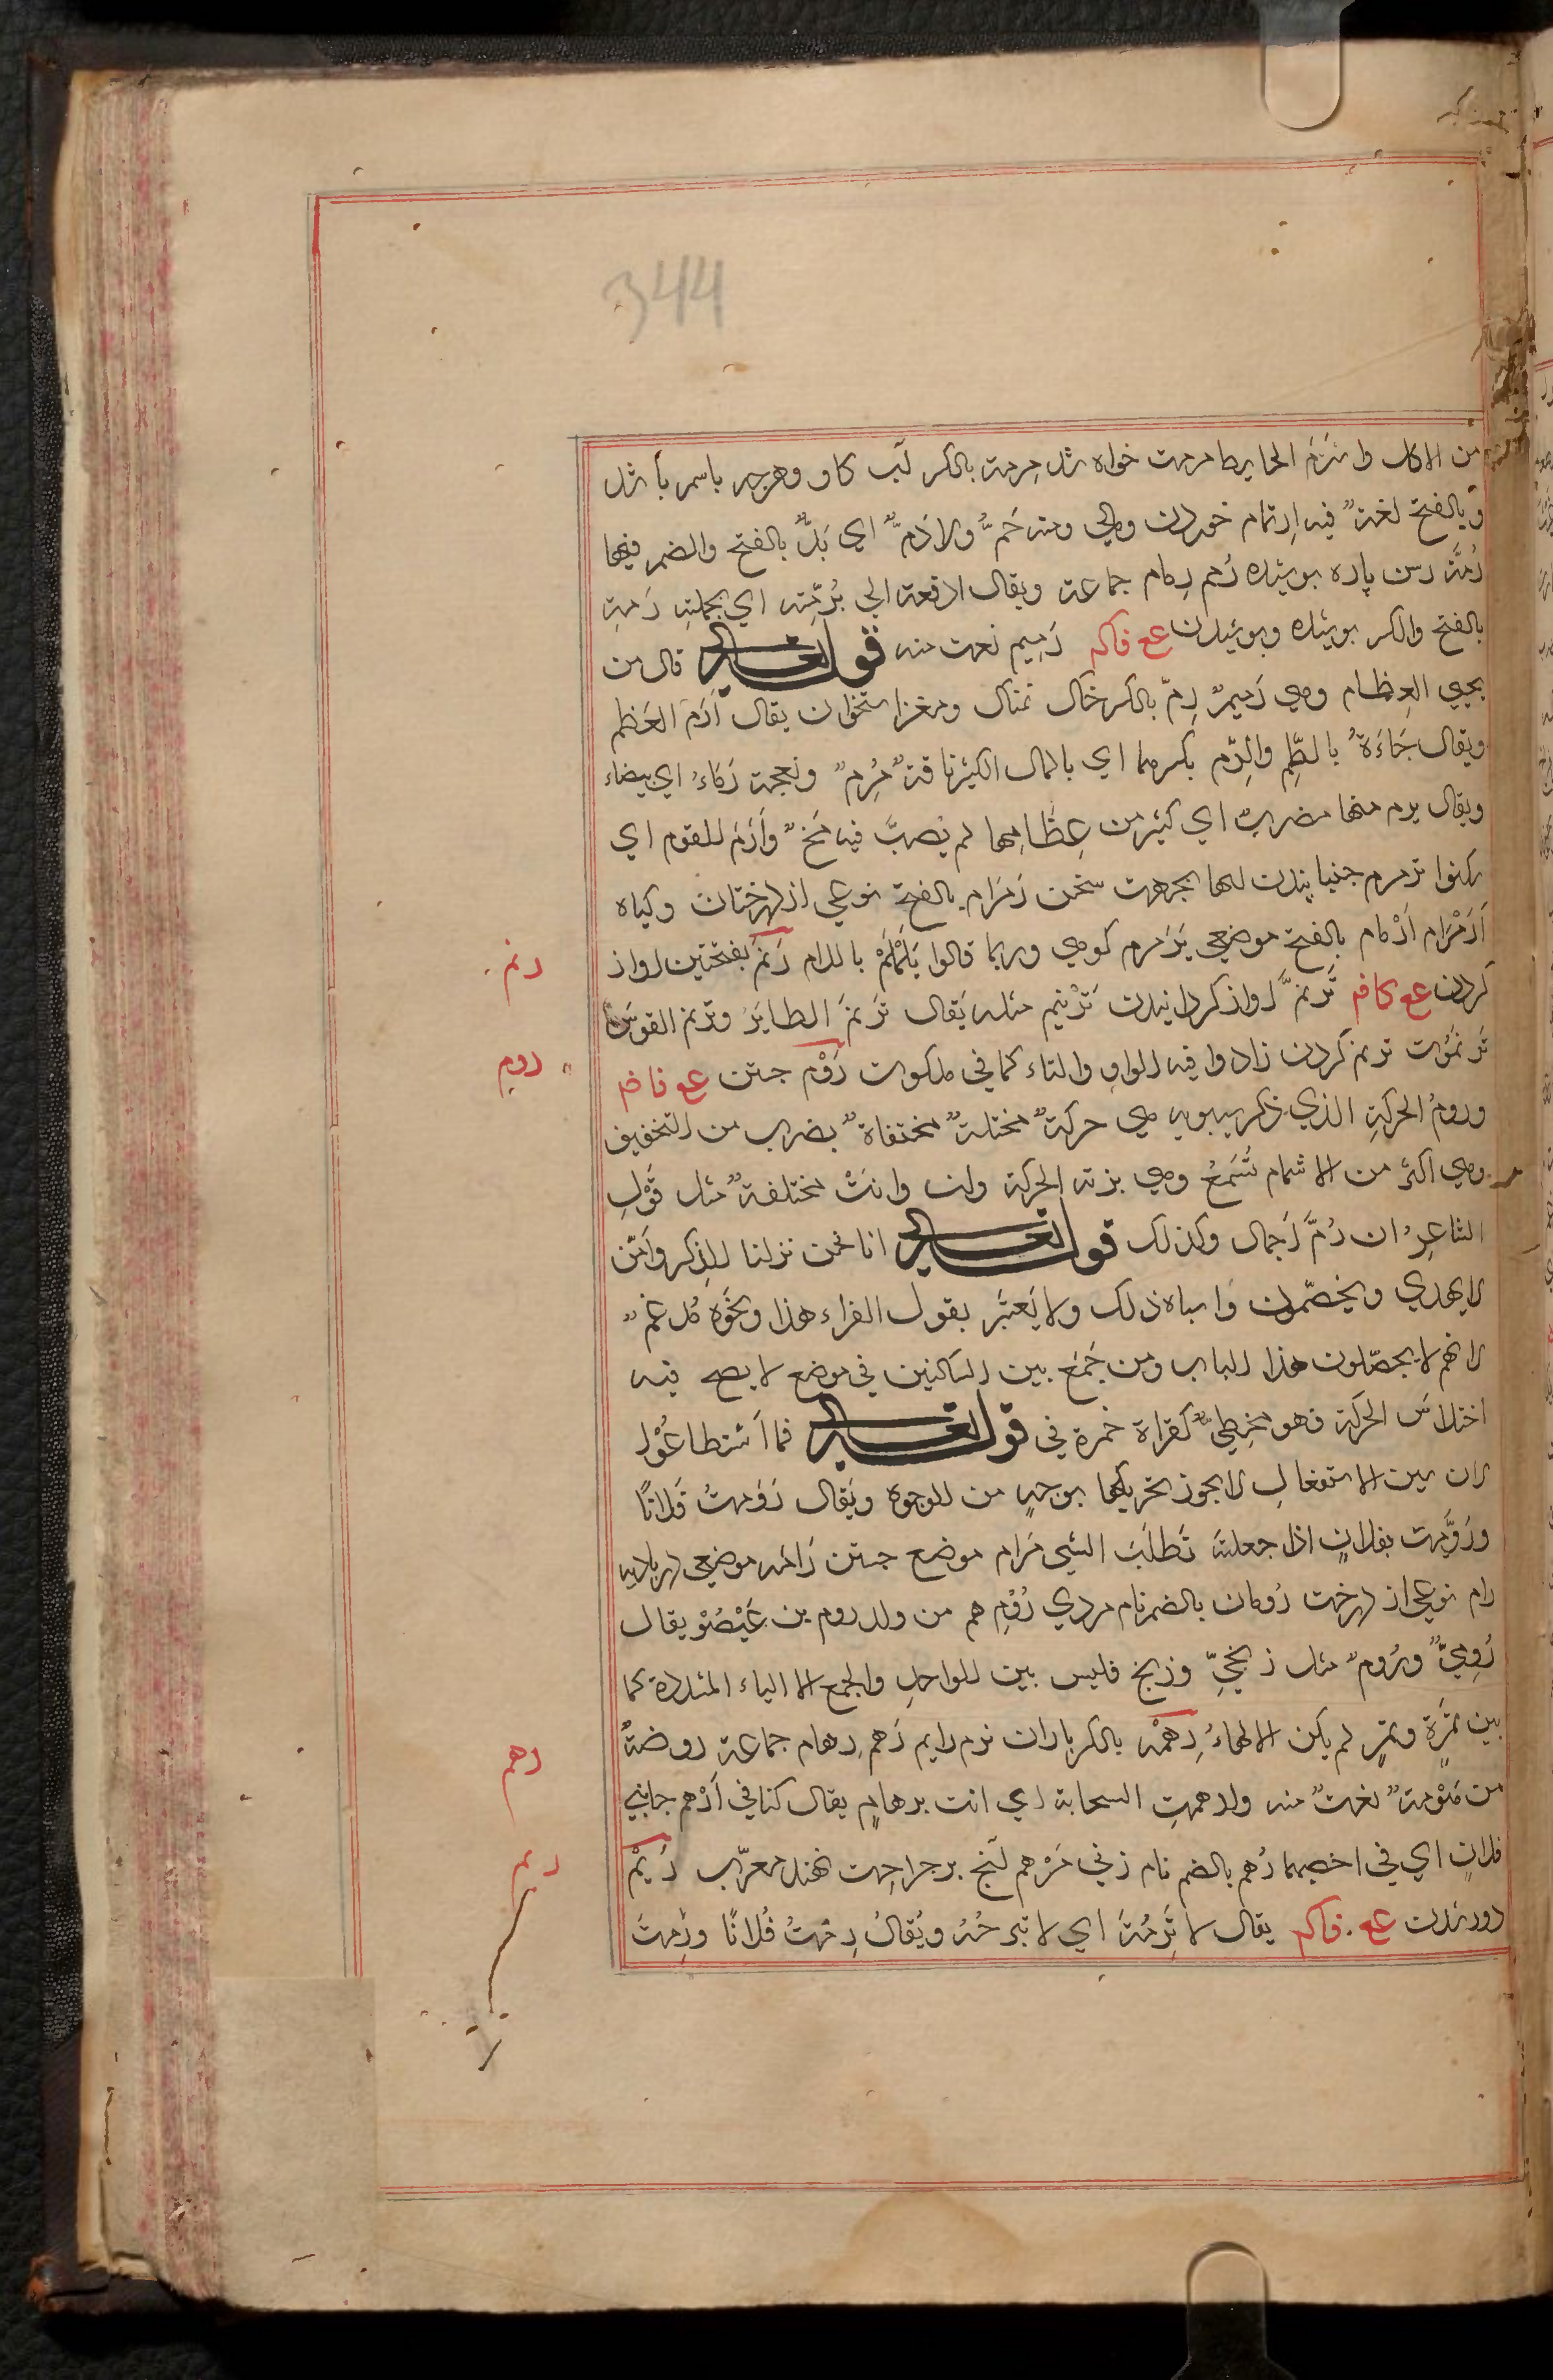 344
من الاكل واسترم الحايط مرمت خواه شد مرمة بالكسر لب كاو وهرچه باسم باشد
وبالفتح لغة فيه ارتمام خوردن ومالي ومنه حم ولارم اي بد بالفتح والضم فيهما
رمة رسن پاره پوشيده رمم رمام جماعة ويقال ادفعه الي برمته اي بجملته رمة
بالفتح والكسر پوسيده وپوسيدن ع فاكم رميم نعت منه قوله تعالي قال من
يحيي العظام وهي رميم رم بالكسر خاك نمناك ومغز استخوان يقال ارم العظم
ويقال جاءه بالطم والرم بكسرهما اي بالمال الكثير ناقة مرم ونعجة رماء اي بيضاء
ويقال يرم منها مضرب اي كثير من عظامها لم يصب فيه مخ وارم للقوم اي
سكنوا ترمرم جنبانيدن لبها بجهت سخن رمرام بالفتح نوعي از درختان وكياه
ارمرام ارمام بالفتح موضعي يرمرم كوهي وربما قالوا يلملم باللام رنم بفتحتين اواز
رنم
كردن ع كافم ترنم اواز كردانيدن ترنيم مثله يقال ترنم الطاير وترنم القوس
ترنموت ترنم كردن زادوا فيه الواو والتاء كما في ملكوت روم جستن ع فاضم
روم
وروم الحركة الذي ذكر سيبويه هي حركة مختلسة مختفاة بضرب من التخفيف
وهي اكثر من الاشمام تسمع وهي بزنة الحركة وان وانت مختلفة مثل قول
الشاعر ان زم اجمال وكذلك قوله تعالي انا نحن نزلنا الذكر وامن
لا يهدي ويخصمون واشباه ذلك ولا يعتبر بقول الفراء هذا ونحوه كل غم
لانهم لا يحصلون هذا الباب ومن جمع بين الساكنين في موضع لا يصح فيه
اختلاس الحركة فهو مخطي كقراة حمزة في قوله تعالي فما اسطاعوا
لان سين الاستفعال لا يجوز تحريكها بوجه من الوجوه ويقال رومت فلانا
ورومت بفلان اذا جعلته تطلب الشي مرام موضع جستن رامه موضعي در باديه
رام نوعي از درخت رومان بالضم نام مردي روم هم من ولد روم بن عيصو يقال
رومي وروم مثل زنجي وزنج فليس بين الواحد والجمع الا الياء المشددة كما
بين تمرة وتمر لم يكن الا الهاء رهمه بالكسر باران نرم دايم رهم رهام جماعة روضة
رهم
من مرهومة نعت منه وارهمت السحابة اي اتت برهام يقال كنا في ارهم جانبي
فلان اي في اخصبهما رهم بالضم نام زني مرهم آنچ بر جراحت نهند معرب ريم
ريم
دور شدن ع فاكم يقال لا ترمه اي لا تبرحه ويقال رمت فلانا ورمت